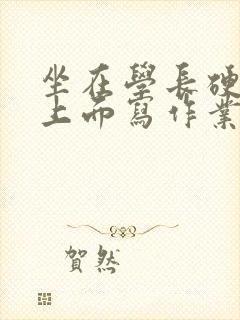 坐在學長硬
上面寫作業
賀然